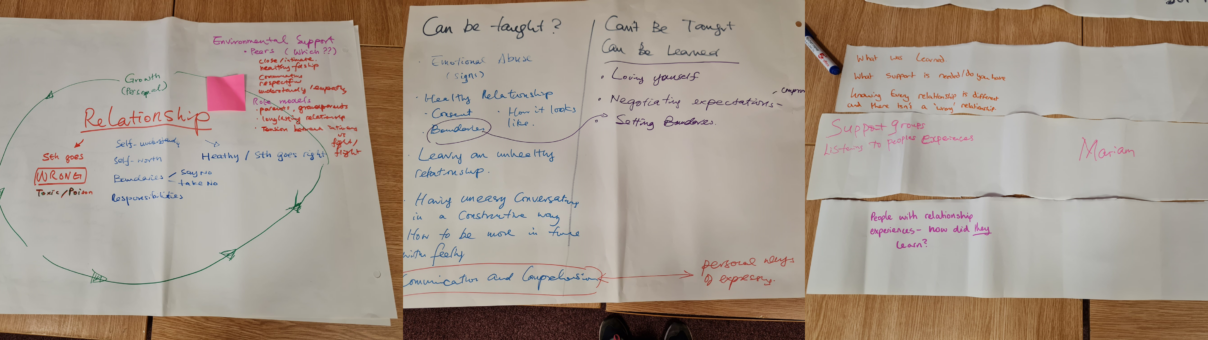 Environmental Support
• Peers (Which??)
close/intimate
healthy
Community
respectful
understanding/capacity
Role models
• parents, grandparents
• long lasting relationship
• Tension between intimacy
vs
fight/
flight
Growth
(Personal)
Relationship
Sth goes
WRONG
Toxic/Poison
Self-understanding
Self-worth
Boundaries
Say No
take No
Responsibilities
Healthy / Sth goes right
Can be taught?
• Emotional Abuse
(signs)
• Healthy Relationship
• Consent
• How it looks
like.
• Boundaries
• Leaving an unhealthy
relationship.
Having uneasy Conversation
in a Constructive way
How to be more in tune
with feelings
Communication and Comprehension
Can't Be Taught
Can Be Learned
• Loving yourself
• Negotiating expectations -
• Setting Boundaries.
personal ways
of expressing
What we learned.
What support is needed/do you have
Knowing Every relationship is different
and there isn't a 'wrong' relationship
Support groups
Listening to peoples experiences
Mariam
People with relationship
experiences - how did they
learn?